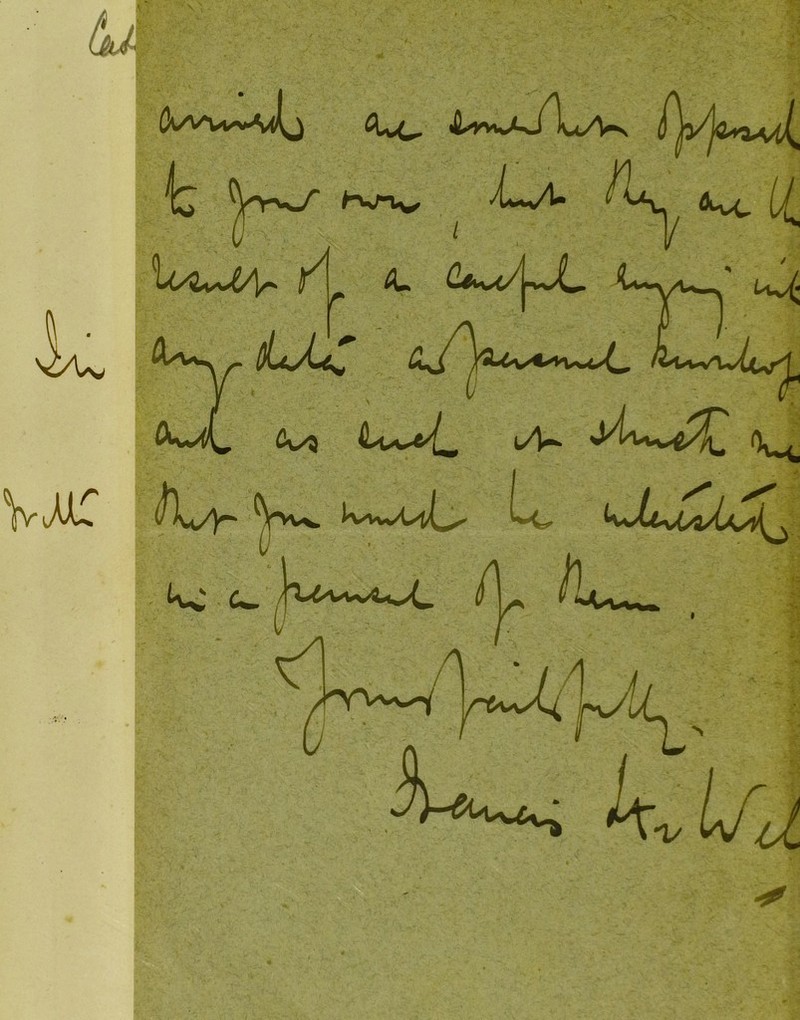 Cat
arrived are somewhat opposed
to your own, but they are th
result of a careful enquiry int
any data as personal knowledg
and as such it struck me
that you would be interested
in a perusal of them.
Yours faithfully,
Francis H. Wel